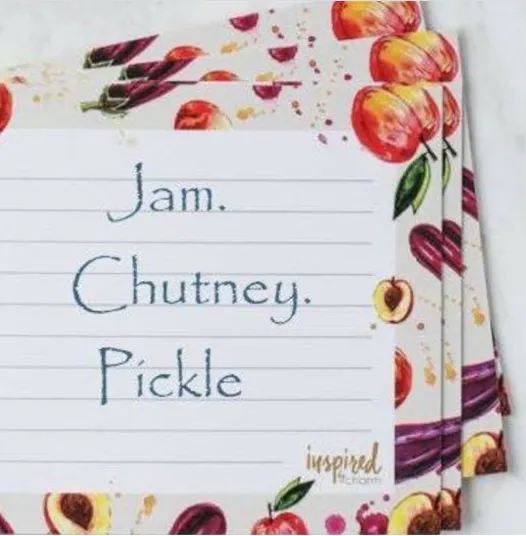 Jam.
Chutney.
Pickle
inspired
by charm